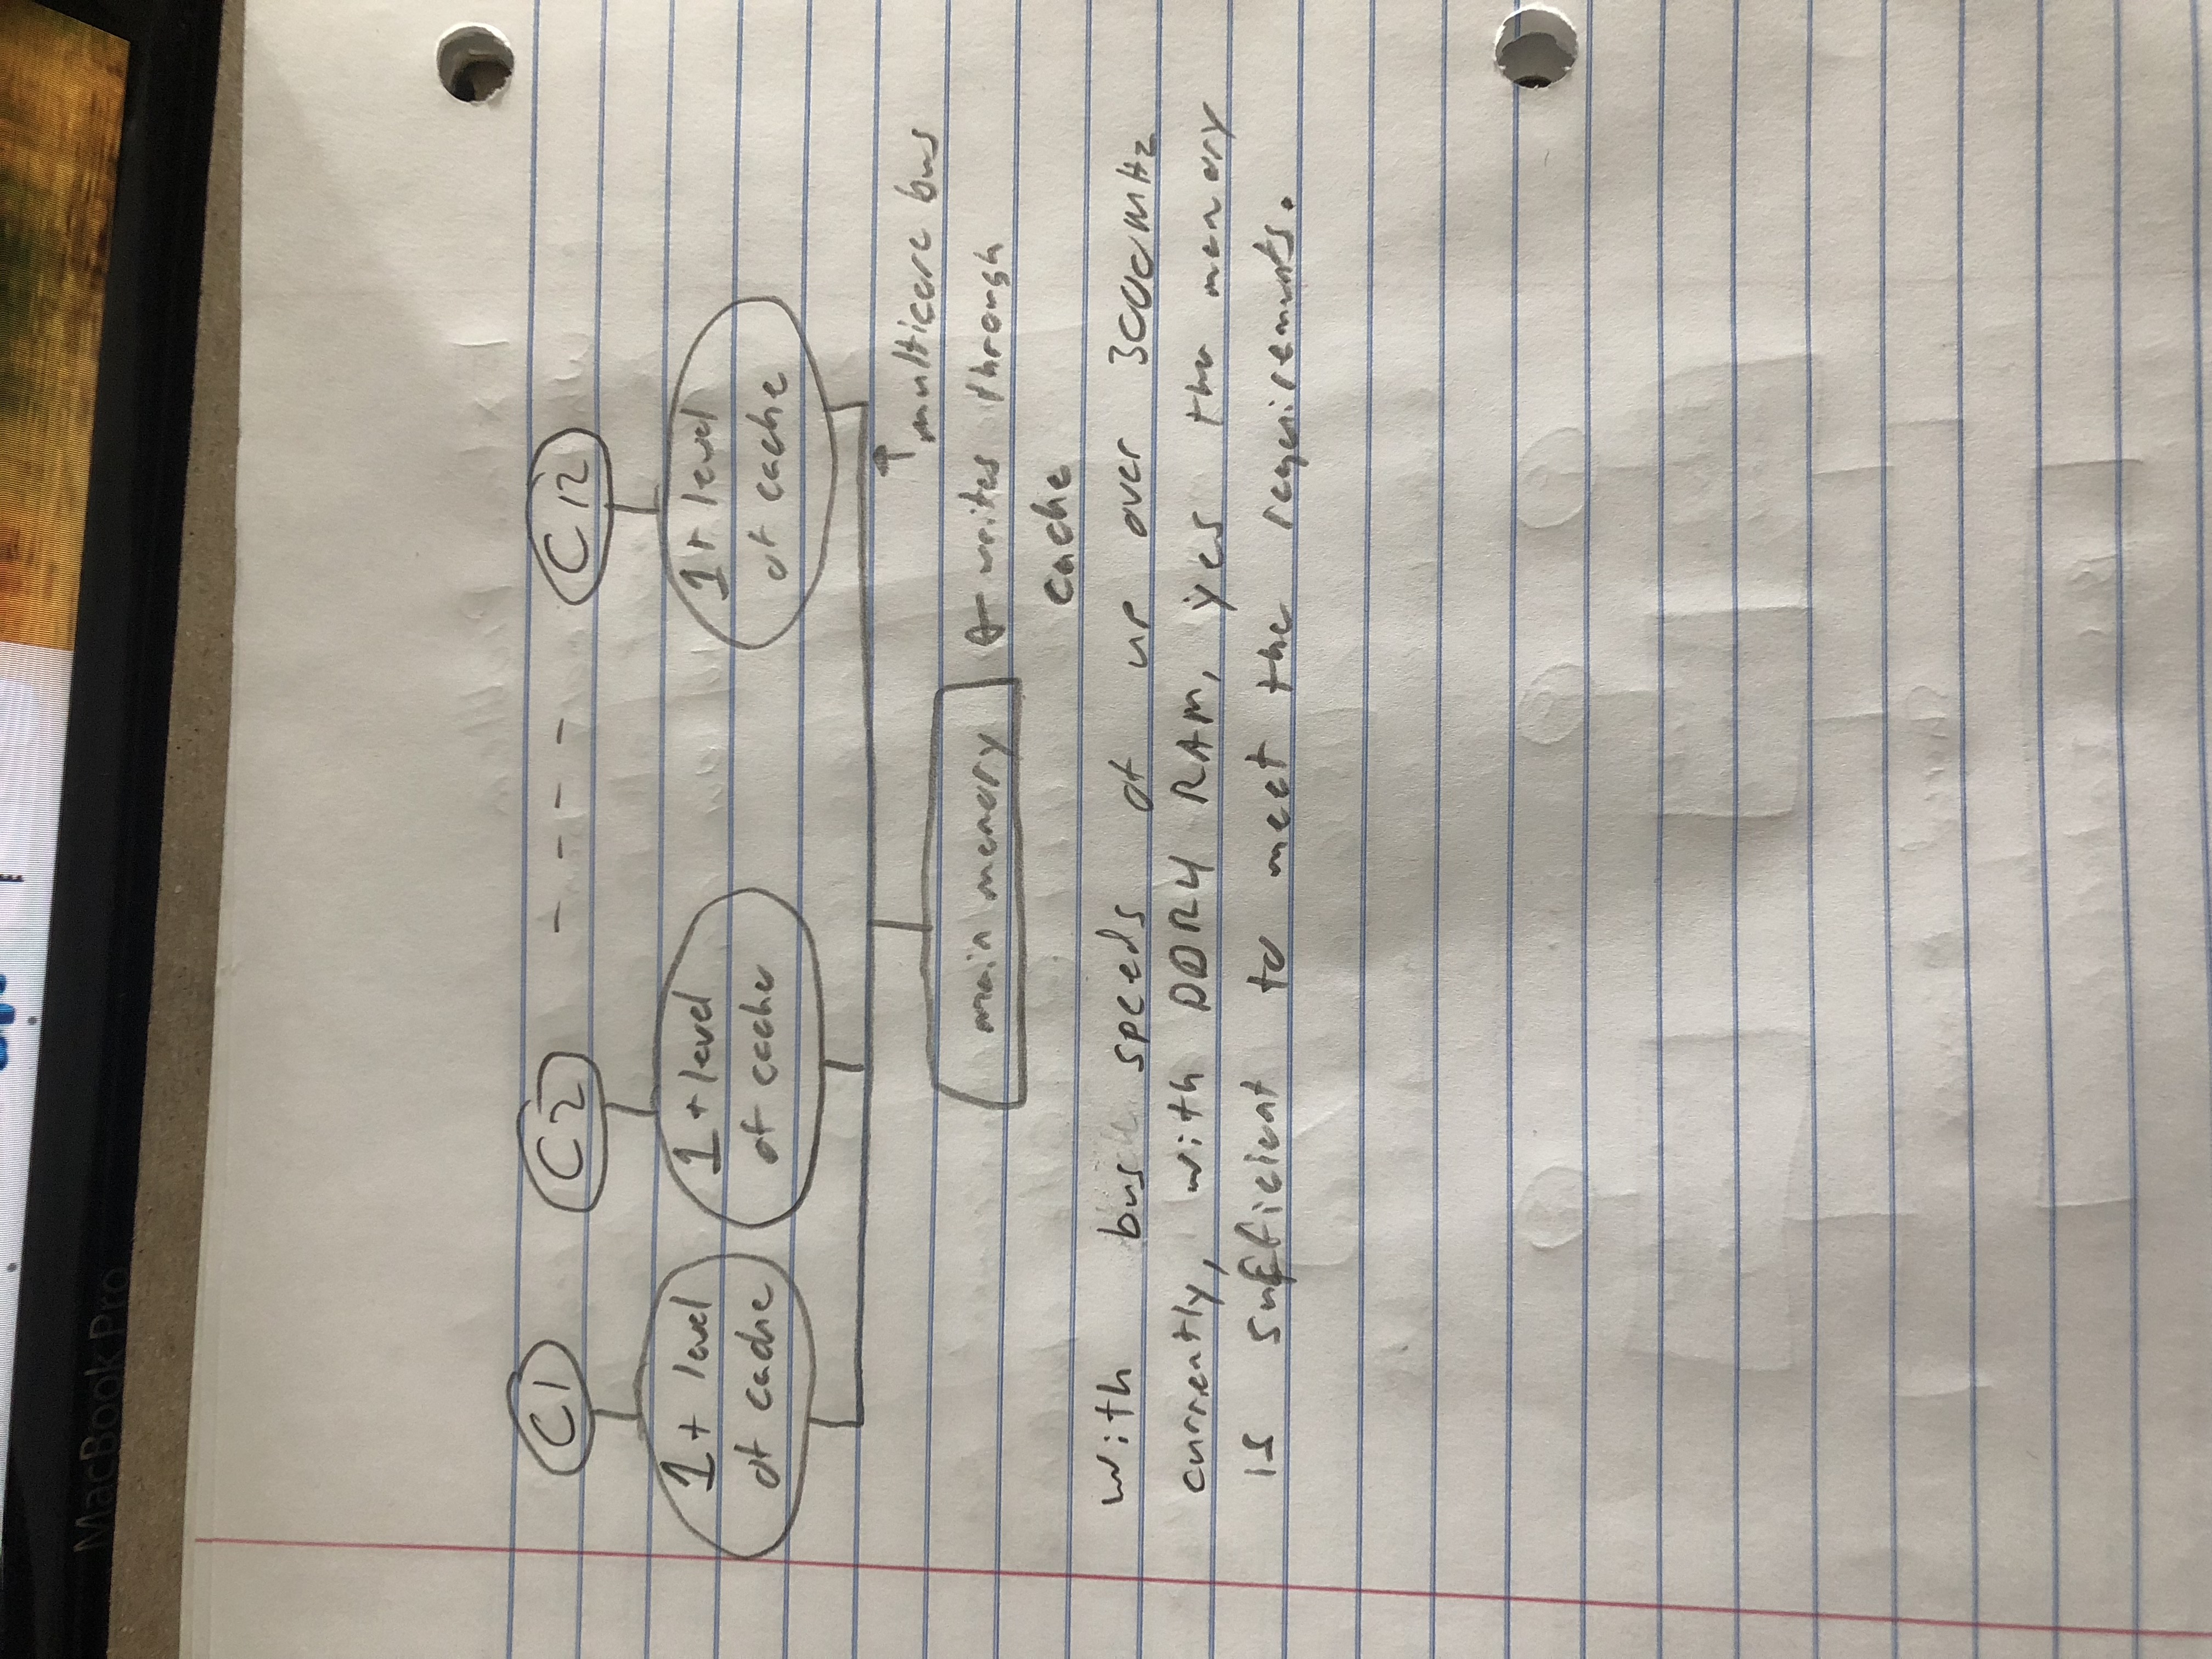 MacBook Pro
C1 C2 - - - - C12
1+ level 1+ level 1+ level
of cache of cache of cache
multicore bus
main memory ← writes through
cache
with bus speeds of up over 3000MHz
currently, with DDR4 RAM, yes the memory
is sufficient to meet the requirements.